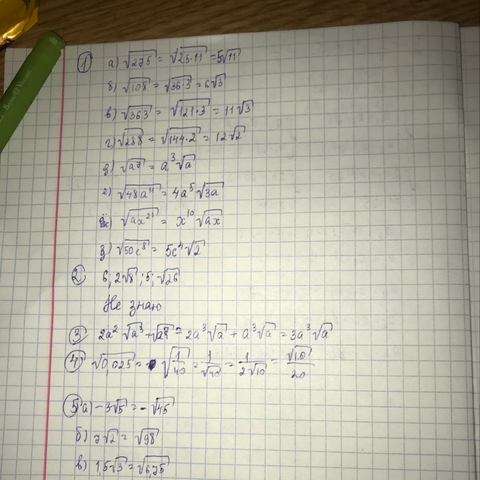 1 а) √275 = √25·11 = 5√11
б) √108 = √36·3 = 6√3
в) √363 = √121·3 = 11√3
г) √288 = √144·2 = 12√2
д) √a7 = a³√a
е) √48a¹¹ = 4a⁵√3a
ж) √ax²¹ = x¹⁰√ax
з) √50c⁸ = 5c⁴√2
2 6; 2√8; 5; √26
Не знаю
3 2a²√a³ + √a⁸ = 2a³√a + a³√a = 3a³√a
4 √0,025 = √1/40 = 1/√40 = 1/2√10 = √10/20
5 а) -3√5 = -√45
б) 7√2 = √98
в) 1,5√3 = √6,75